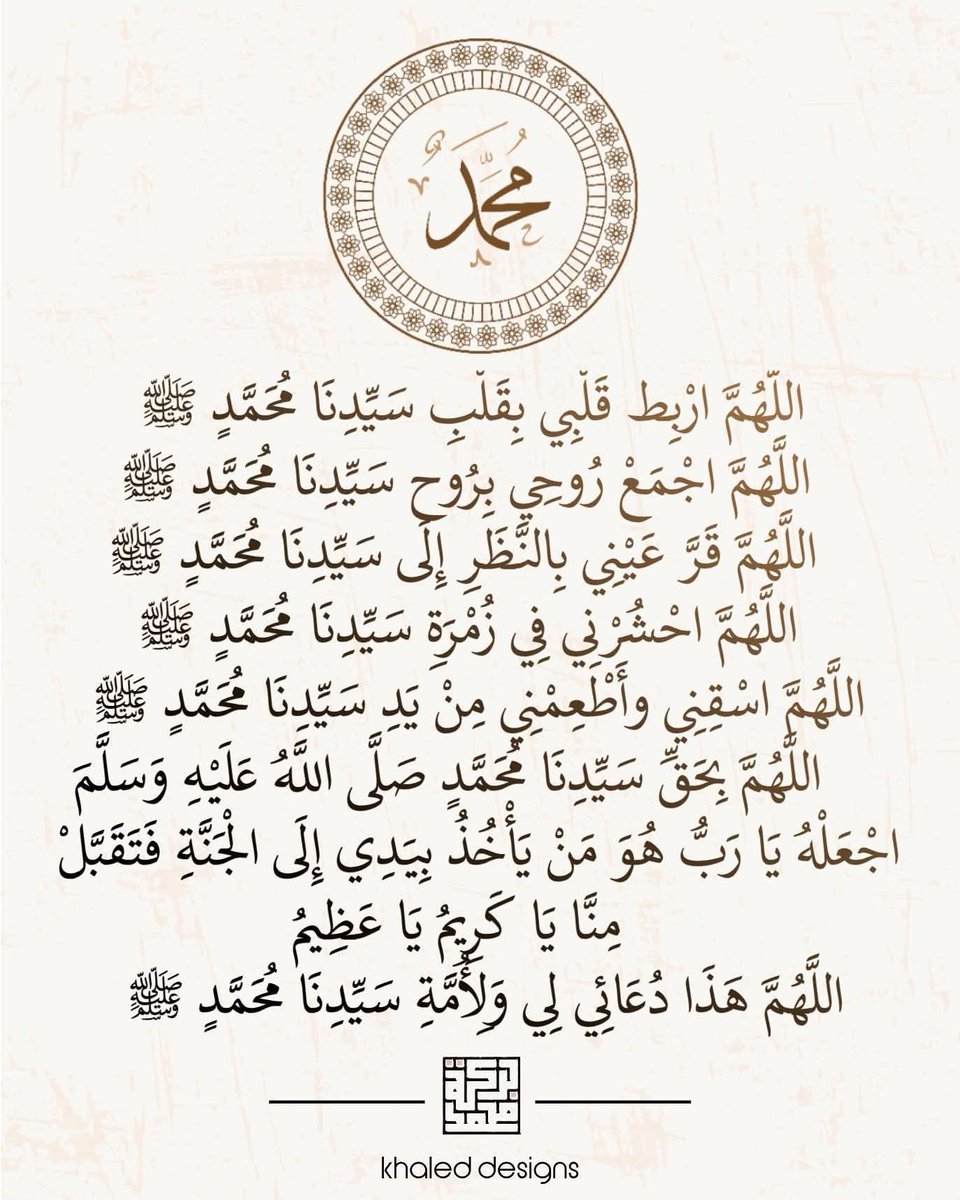 مُحَمَّدٌ
اللّهُمَّ ارْبِط قَلْبِي بِقَلْبِ سَيِّدِنَا مُحَمَّدٍ ﷺ
اللَّهُمَّ اجْمَعْ رُوحِي بِرُوحِ سَيِّدِنَا مُحَمَّدٍ ﷺ
اللَّهُمَّ قَرَّ عَيْنِي بِالنَّظَرِ إِلَى سَيِّدِنَا مُحَمَّدٍ ﷺ
اللَّهُمَّ احْشُرْنِي فِي زُمْرَةِ سَيِّدِنَا مُحَمَّدٍ ﷺ
اللَّهُمَّ اسْقِنِي وأَطْعِمْنِي مِنْ يَدِ سَيِّدِنَا مُحَمَّدٍ ﷺ
اللَّهُمَّ بِحَقِّ سَيِّدِنَا مُحَمَّدٍ صَلَّى اللَّهُ عَلَيْهِ وَسَلَّمَ
اجْعَلْهُ يَا رَبُّ هُوَ مَنْ يَأْخُذُ بِيَدِي إِلَى الْجَنَّةِ فَتَقَبَّلْ
مِنَّا يَا كَرِيمُ يَا عَظِيمُ
اللَّهُمَّ هَذَا دُعَائِي لِي وَلِأُمَّةِ سَيِّدِنَا مُحَمَّدٍ ﷺ
khaled designs